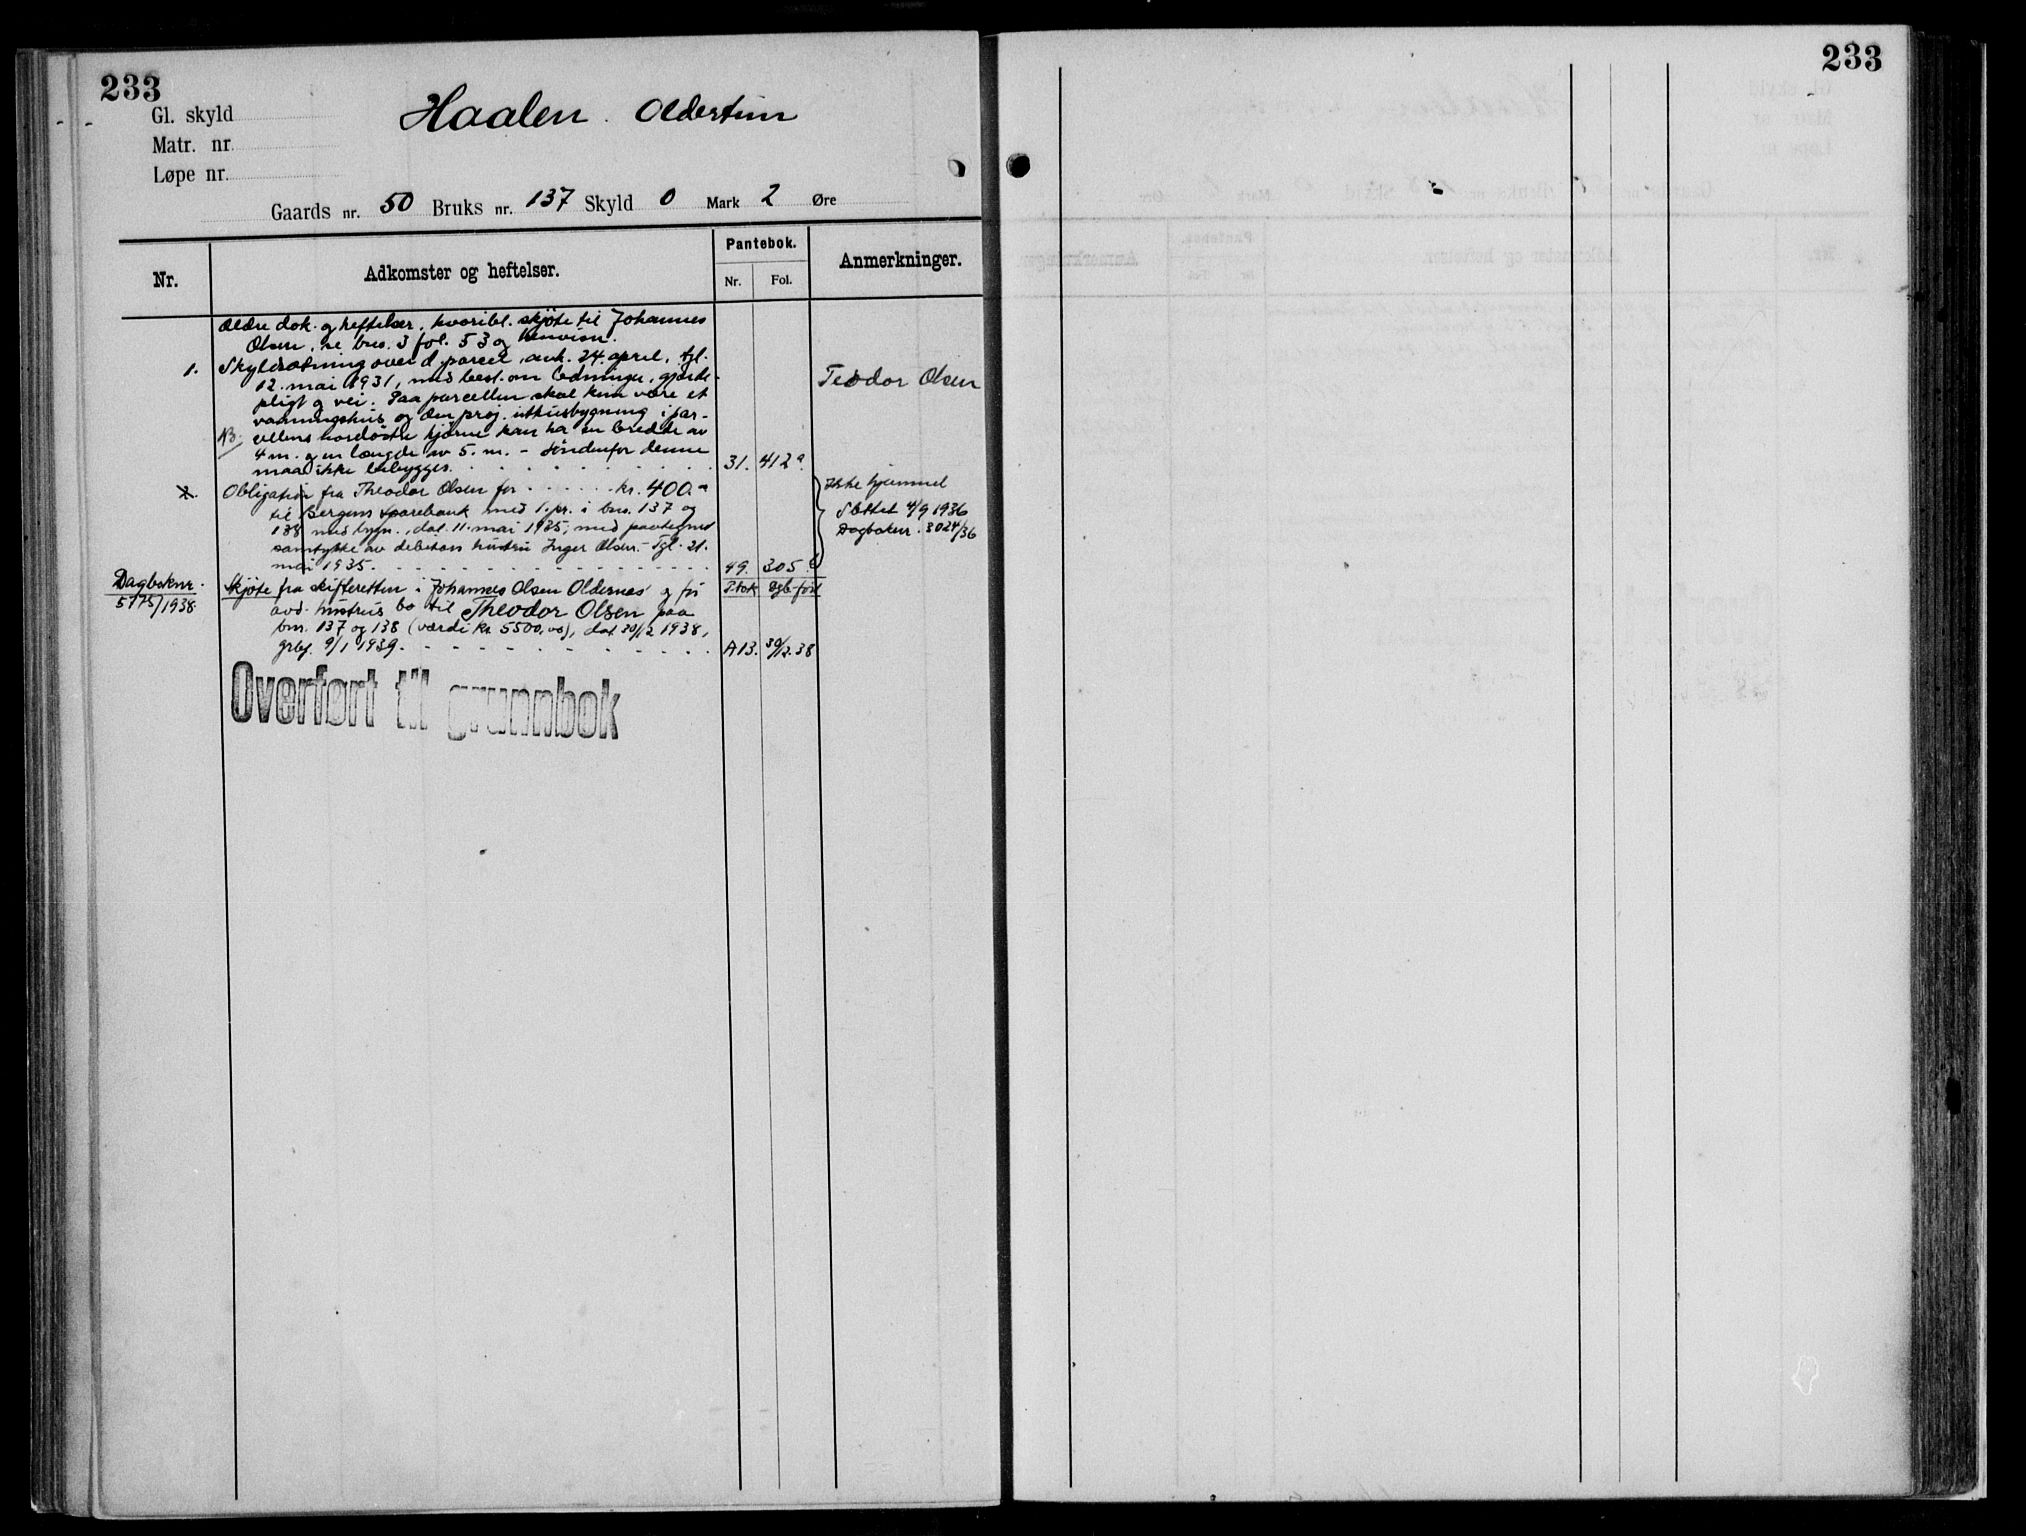 233
Gl. skyld
Haalen. Oldertun
Matr. nr.
Løpe nr.
Gaards nr. 50 Bruks nr. 137 Skyld 0 Mark 2 Øre
Nr. Adkomster og heftelser. Pantebok. Anmerkninger.
Nr. Fol.
Ældre dok. og heftelser, hvoribl. skjøte til Johannes
Olsen, se bno. 3 fol. 53 og henvisn.
1. Skyldsætning over d. parcel, avh. 24. april, tgl.
12. mai 1931, med best. om ledninger, gjærde- Teodor Olsen
pligt og vei. Paa parcellen skal kun være et
vaaningshus og den proj. uthusbygning i par-
NB. cellens nordøstre hjørne kan ha en bredde av
4 m. og en længde av 5. m. - Søndenfor denne
maa ikke bebygges. 31. 412a
2. Obligation fra Theodor Olsen for kr. 400.- Ikke hjemmel
til Bergens sparebank med 1. pr. i bno. 137 og Slettet 4/9 1936
138 med bygn., dat. 11. mai 1935, med paategnet Dagboknr. 3024/36
samtykke av debitors hustru Inger Olsen. - Tgl. 21.
mai 1935. 49. 305b
Dagboknr. Skjøte fra skifteretten i Johannes Olsen Oldernes' og før P.bok Dgb.ført
5175/1938 avd. hustrus bo til Theodor Olsen paa
bnr. 137 og 138 (værdi kr. 5500,00), dat. 30/12 1938,
grbf. 9/1 1939. A13. 30/12.38
Overført til grunnbok
233